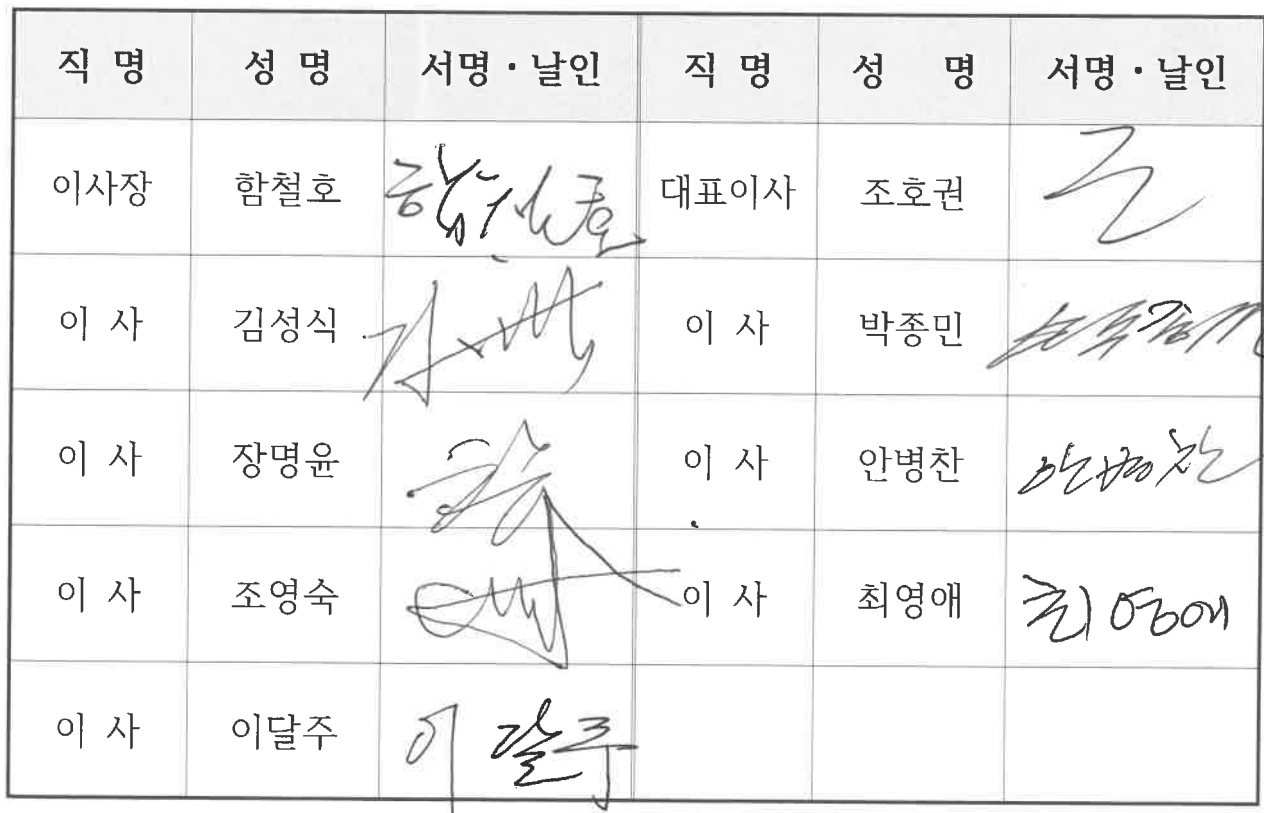 직 명 성 명 서명·날인 직 명 성 명 서명·날인
이사장 함철호 함철호 대표이사 조호권
이 사 김성식 이 사 박종민
이 사 장명윤 이 사 안병찬 안병찬
이 사 조영숙 이 사 최영애 최영애
이 사 이달주 이달주